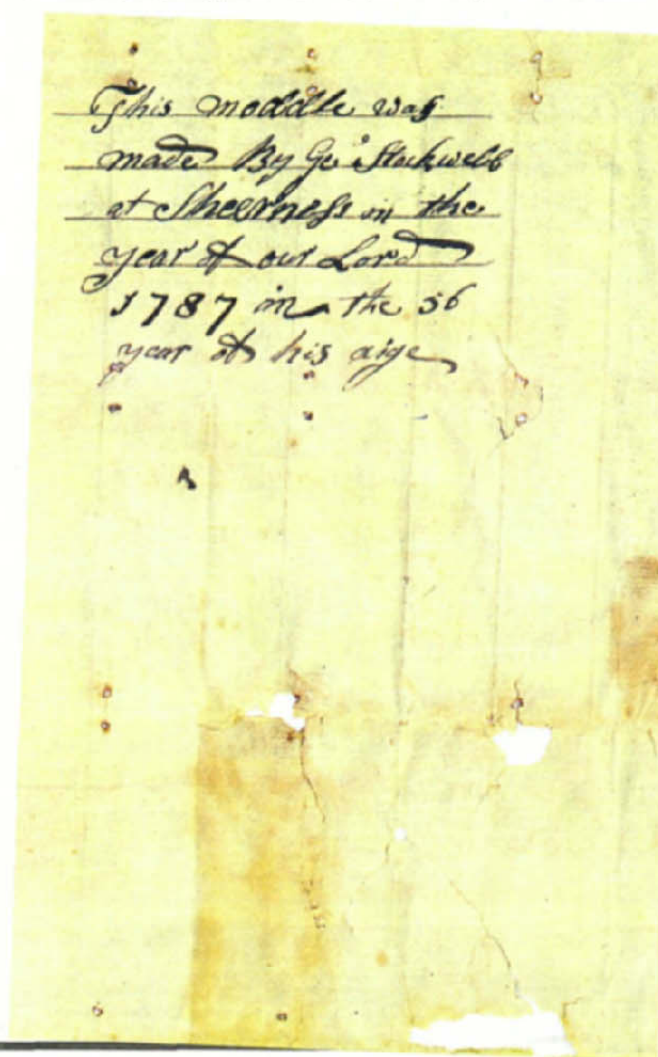 This moddle was
made By Geo Stockwell
at Sheerness in the
year of our Lord
1787 in the 56
year of his aige